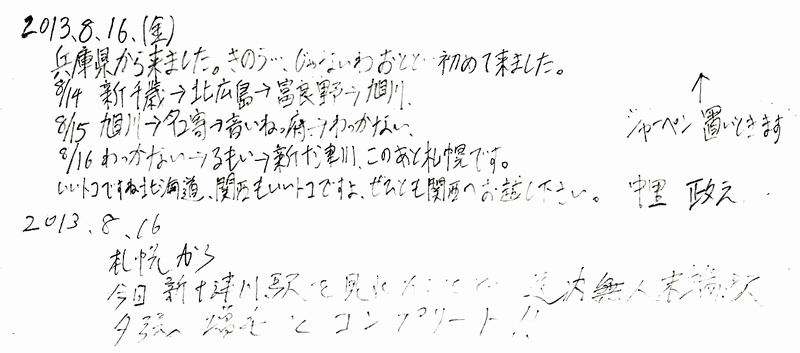 2013.8.16.(金)
兵庫県から来ました。きのう…、じゃないわおととい初めて来ました。
8/14 新千歳→北広島→富良野→旭川、
8/15 旭川→名寄→音いねっ府→わっかない、
8/16 わっかない→るもい→新十津川、このあと札幌です。
いいトコですね北海道、関西もいいトコですよ、ぜひとも関西へお越し下さい。
↑
シャーペン置いときます
中里
2013.8.16
札幌から
今日新十津川駅を見れたことで 道内無人末端駅
夕張、増毛とコンプリート!!